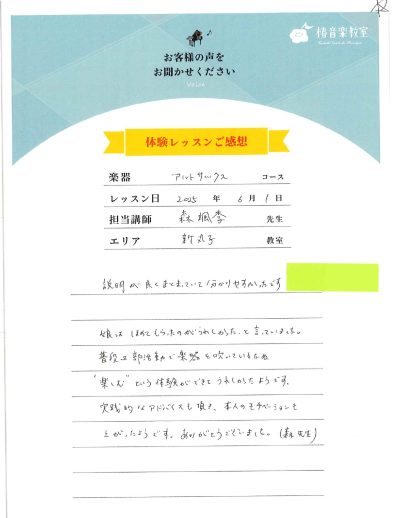 椿音楽教室
お客様の声を
お聞かせください
VOICE
体験レッスンご感想
楽器 アルトサックス コース
レッスン日 2025 年 6 月 1 日
担当講師 森 颯季 先生
エリア 新丸子 教室
説明が良くまとまっていて分かりやすかったです
娘は ほめてもらったのがうれしかった、と言っていました。
普段は部活動で楽器を吹いているため
"楽しむ" という体験ができて うれしかったようです。
実践的なアドバイスも頂き、本人のモチベーションも
上がったようです。ありがとうございました。(森先生)